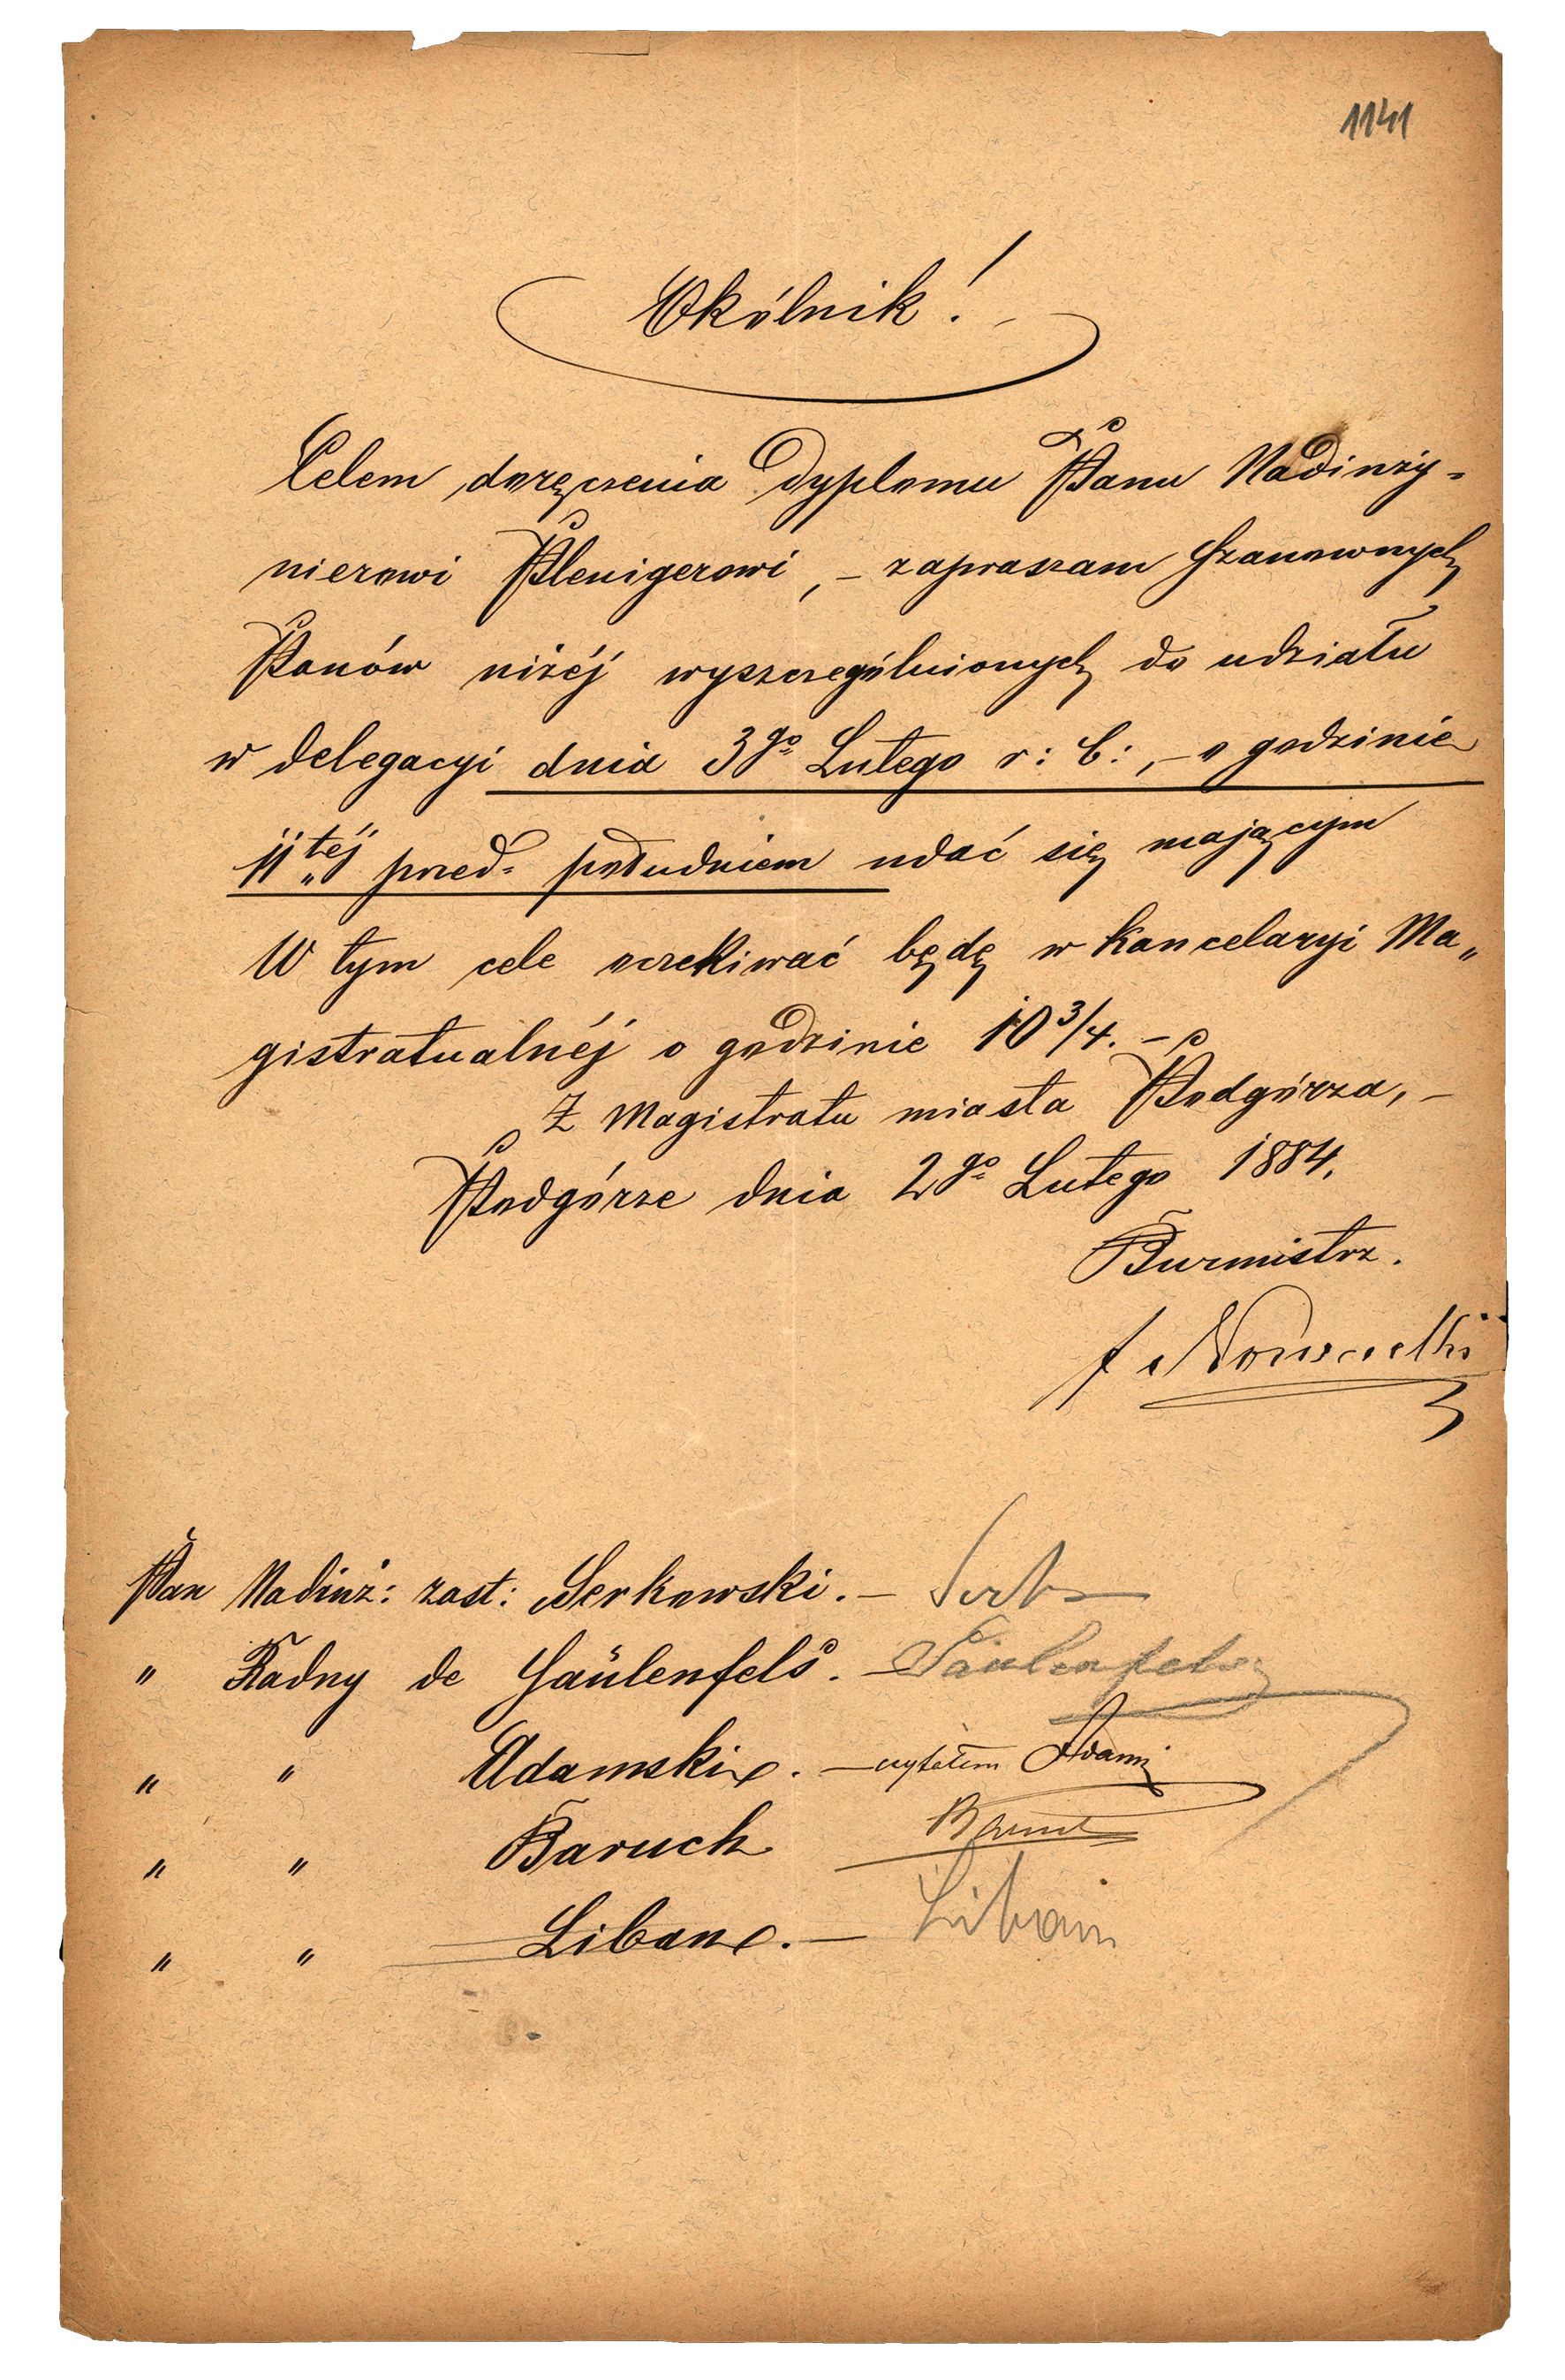 1141
Okólnik!
Celem doręczenia Dyplomu Panu Nadinży-
nierowi Plenigerowi, – zapraszam Szanownych
Panów niżéj wyszczególnionych do udziału
w delegacyi dnia 3go Lutego r: b:, – o godzinie
11téj przed południem udać się mającym
W tym cele oczekiwać będę w Kancelaryi Ma„
gistratualnéj o godzinie 10 3/4. –
Z Magistratu miasta Podgórza, –
Podgórze dnia 2go Lutego 1884.
Burmistrz.
Pan Nadinż: zast: Serkowski. – Serk
" Radny de Saülenfels. – Säulenfels
" " Adamski. – czytałem Adami
" " Baruch Baruch
" " Liban. – Liban